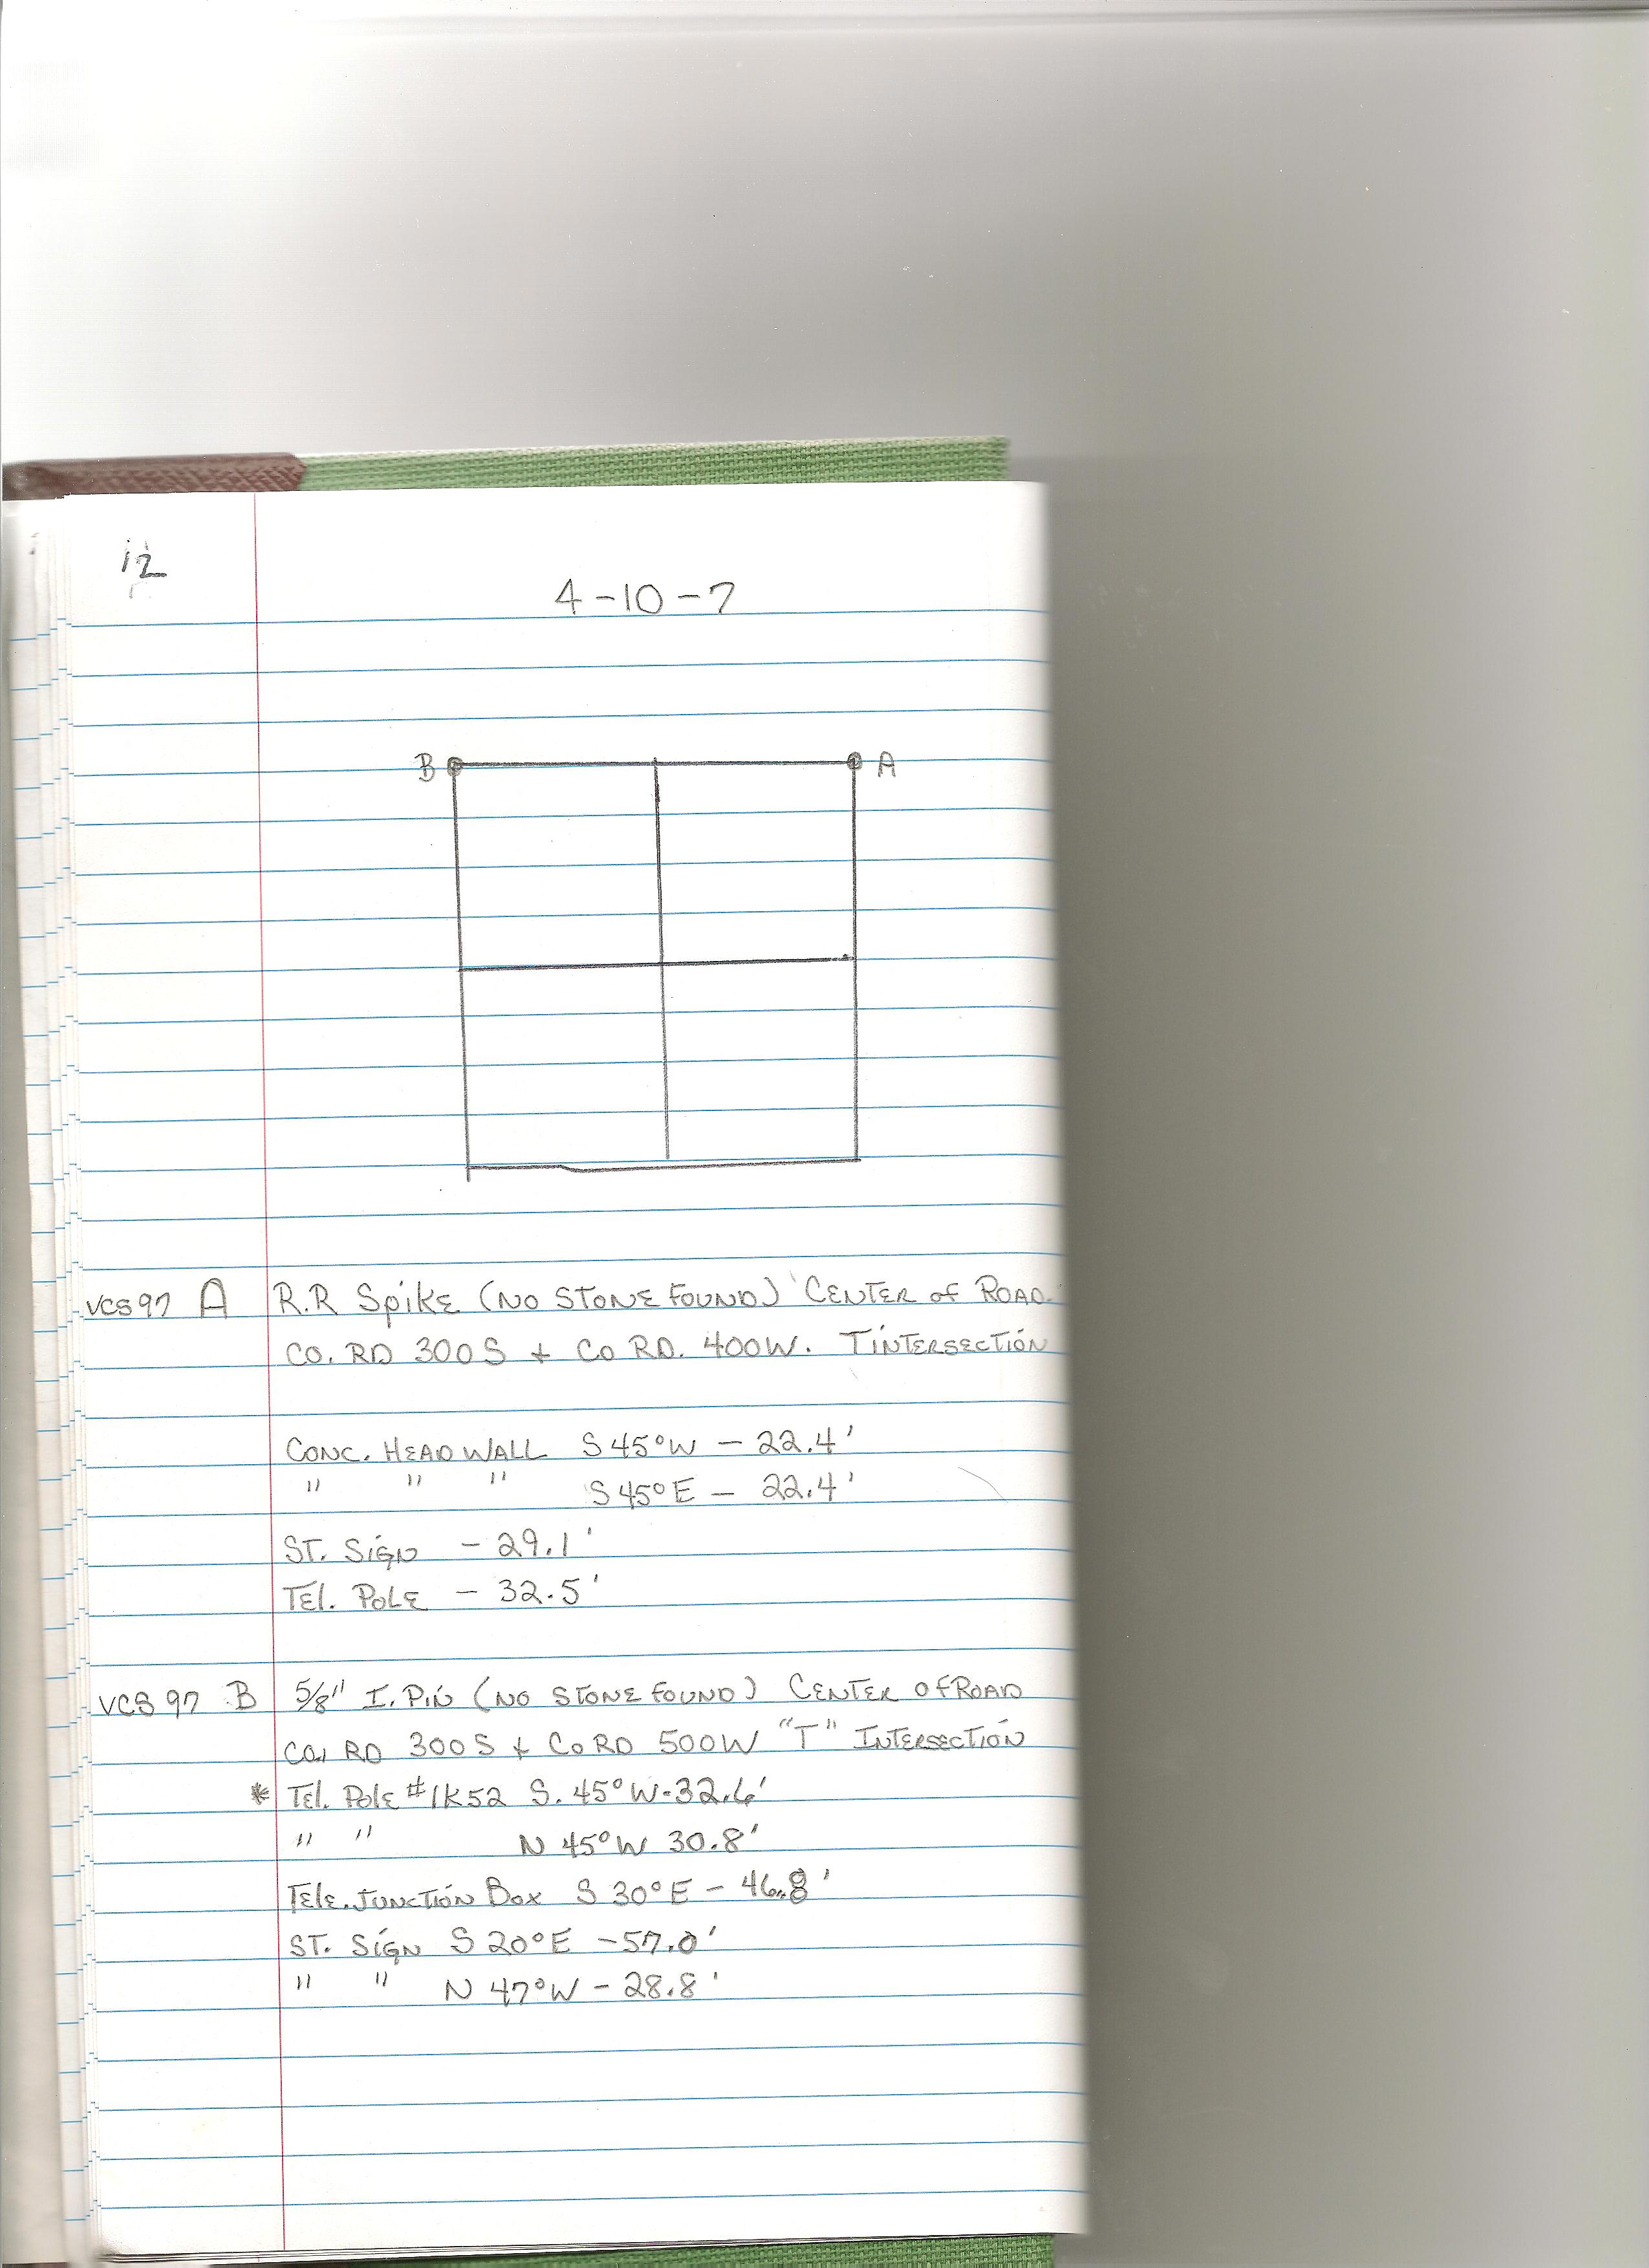 12
4-10-7
B A
VCS97 A R.R Spike (NO STONE FOUND) CENTER of ROAD.
CO. RD 300S + CO RD. 400W. T INTERSECTION
CONC. HEAD WALL S 45°W - 22.4'
" " " S 45°E - 22.4'
ST. SIGN - 29.1'
TEL. POLE - 32.5'
VCS 97 B 5/8" I. PIN (NO STONE FOUND) CENTER OF ROAD
CO. RD 300S + CO RD 500W "T" INTERSECTION
* TEL. POLE #1K52 S. 45°W-32.6'
" " N 45°W 30.8'
TELE. JUNCTION BOX S 30°E - 46.8'
ST. SIGN S 20°E - 57.0'
" " N 47°W - 28.8'